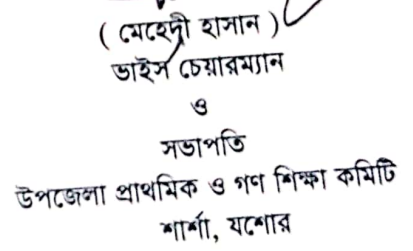 ( মেহেদী হাসান )
ভাইস চেয়ারম্যান
ও
সভাপতি
উপজেলা প্রাথমিক ও গণ শিক্ষা কমিটি
শার্শা, যশোর